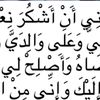 نِي أَنْ أَشْكُرَ نِعْ
يَّ وَعَلَى وَالِدَيَّ وَ
ضَاهُ وَأَصْلِحْ لِي
إِلَيْكَ وَإِنِّي مِنَ الْ